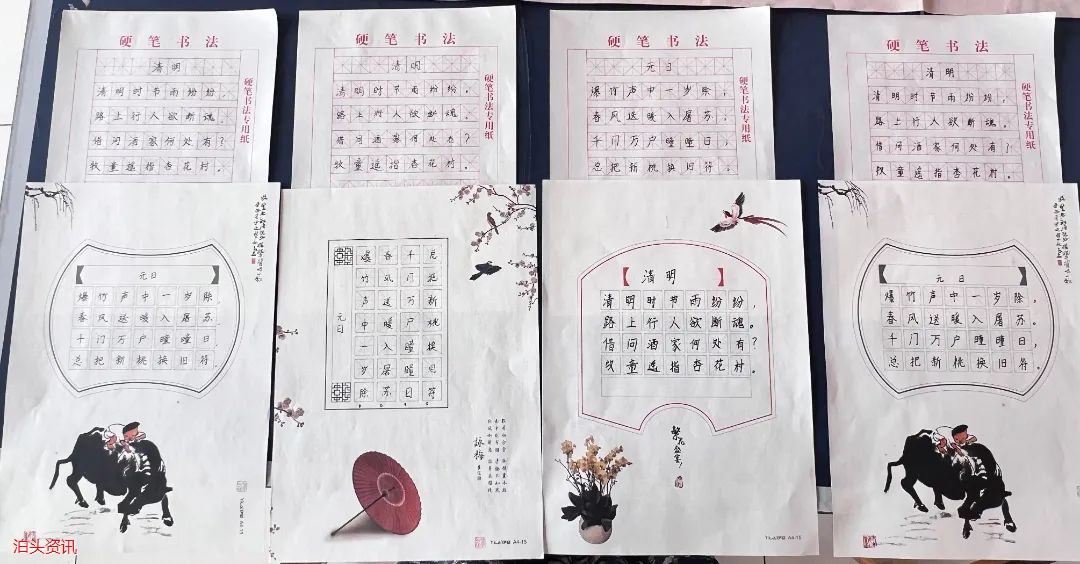 硬笔书法
清明
清明时节雨纷纷，
路上行人欲断魂。
借问酒家何处有？
牧童遥指杏花村。
硬笔书法专用纸
硬笔书法
清明
清明时节雨纷纷，
路上行人欲断魂。
借问酒家何处有？
牧童遥指杏花村。
硬笔书法专用纸
硬笔书法
元日
爆竹声中一岁除，
春风送暖入屠苏。
千门万户曈曈日，
总把新桃换旧符。
硬笔书法专用纸
硬笔书法
清明
清明时节雨纷纷，
路上行人欲断魂。
借问酒家何处有？
牧童遥指杏花村。
硬笔书法专用纸
元日
爆竹声中一岁除
春风送暖入屠苏.
千门万户曈曈日.
总把新桃换旧符
A4-15
元日
爆竹声中一岁除
春风送暖入屠苏
千门万户曈曈日
总把新桃换旧符
詠梅
A4-15
清明
清明时节雨纷纷，
路上行人欲断魂。
借问酒家何处有？
牧童遥指杏花村。
A4-15
元日
爆竹声中一岁除，
春风送暖入屠苏。
千门万户曈曈日，
总把新桃换旧符。
泊头资讯